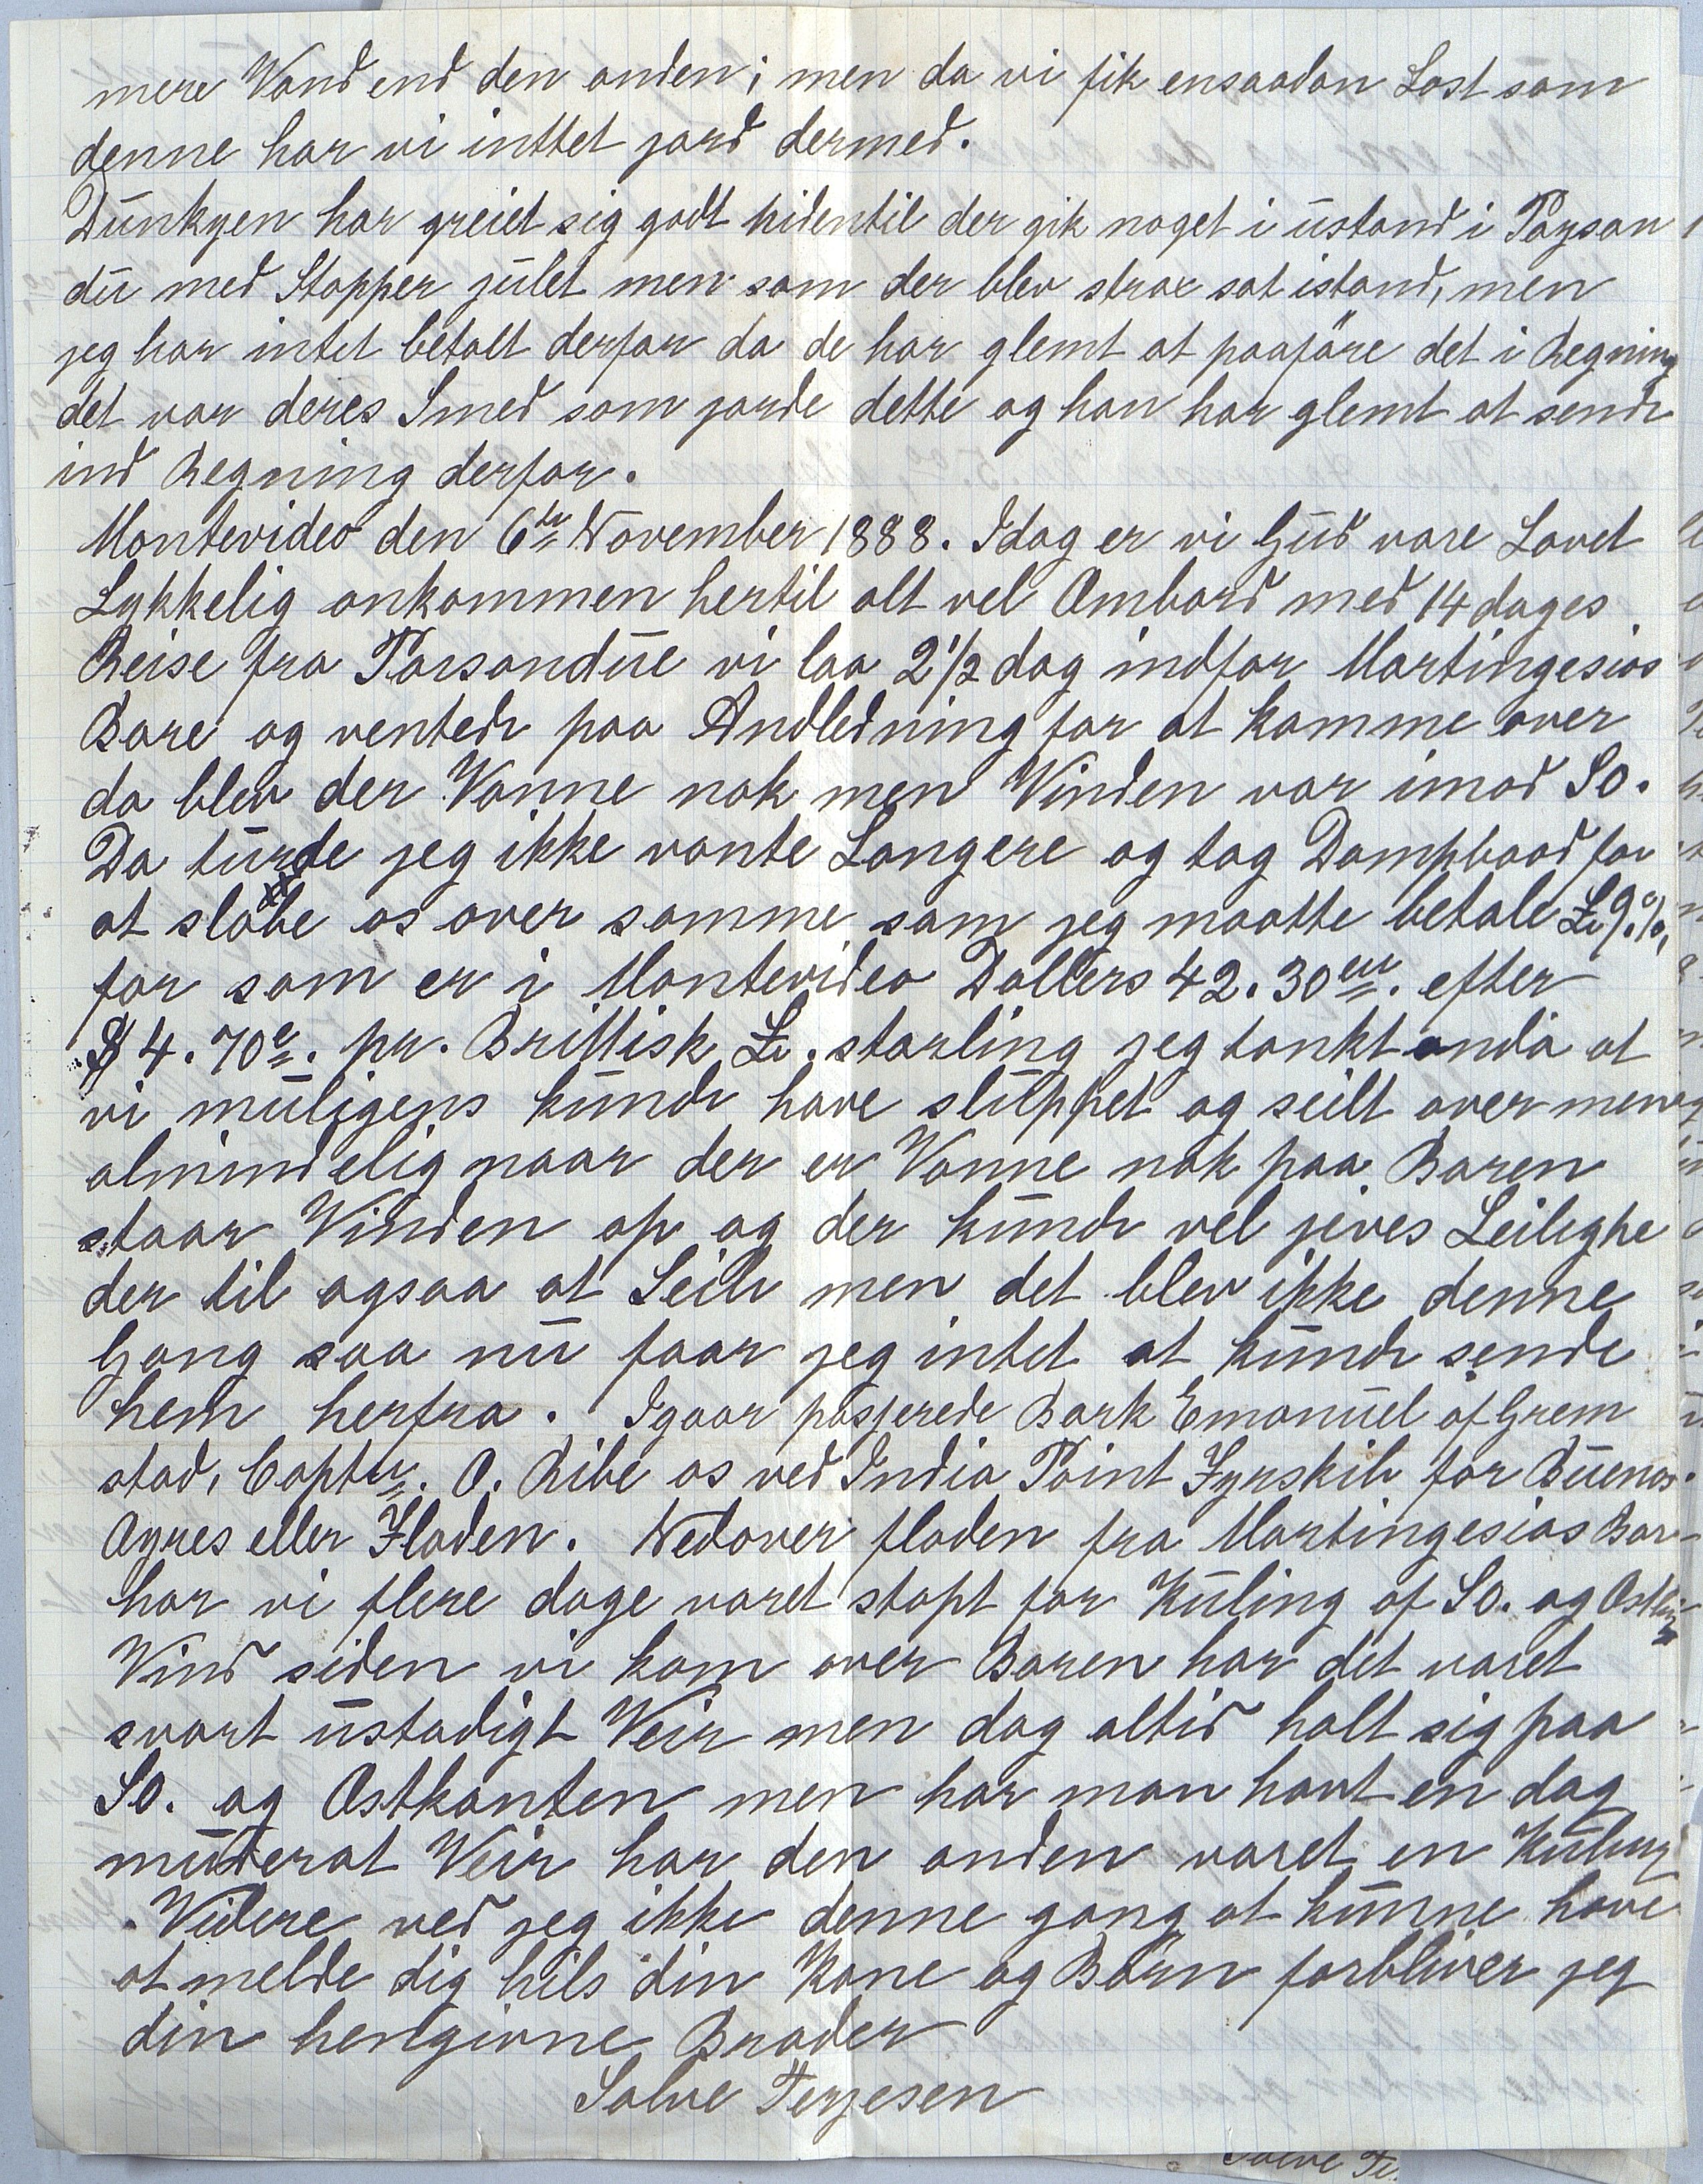 mere Vand end den anden; men da vi fik ensaadan Last som
denne har vi inttet jord dermed.
Dunkyen har greiet sig godt hidentil der gik noget i ustand i Paysan
du med Stopper julet men som der blev strax sat istand, men
jeg har intet betalt derfor da de har glemt at paaföre det i Regning
det var deres Smed som jorde dette og han har glemt at sende
ind Regning derfor.
Montevideo den 6te November 1888. Idag er vi Gud vare Lovet
Lykkelig ankommen hertil alt vel Ombord med 14 dages
Reise fra Parsandue vi laa 2½ dag indfor Martingesias
Bare og ventede paa Andledning for at komme over
da blev der Vanne nok men Vinden var imod SO.
Da turde jeg ikke vante Langere og tog Dampbaad for
at slobe os over samme som jeg maatte betale L. 9.%,
for som er i Montevideo Dollers 42.30 efter
$ 4.70c. pr. Brittisk L. starling jeg tankt anda at
vi muligens kunde have sluppet og seilt over men
almindelig naar der er Vanne nok paa Baren
staar Vinden op og der kunde vel jeves Leilighe
der til ogsaa at Seile men det blev ikke denne
Gang saa nu faar jeg intet at kunde sende
hem herfra. Igaar passerede Bark Emanuel af Grem
stad, Captn. O. Ribe os ved India Point Fyrskib for Buenos.
Ayres eller Floden. Nedover floden fra Martingesias Bar
har vi flere dage varet stopt for Kuling af SO. og Ostlig
Vind siden vi kom over Baren har det varet
svart ustadigt Veir men dog altid holt sig paa
SO. og Ostkanten men har man havt en dag
muderat Veir har den anden varet en Kuling
. Videre ved jeg ikke denne gang at kunne have
at melde dig hils din Kone og Börn forbliver jeg
din hengivne Broder
Salve Terjesen
Salve Te